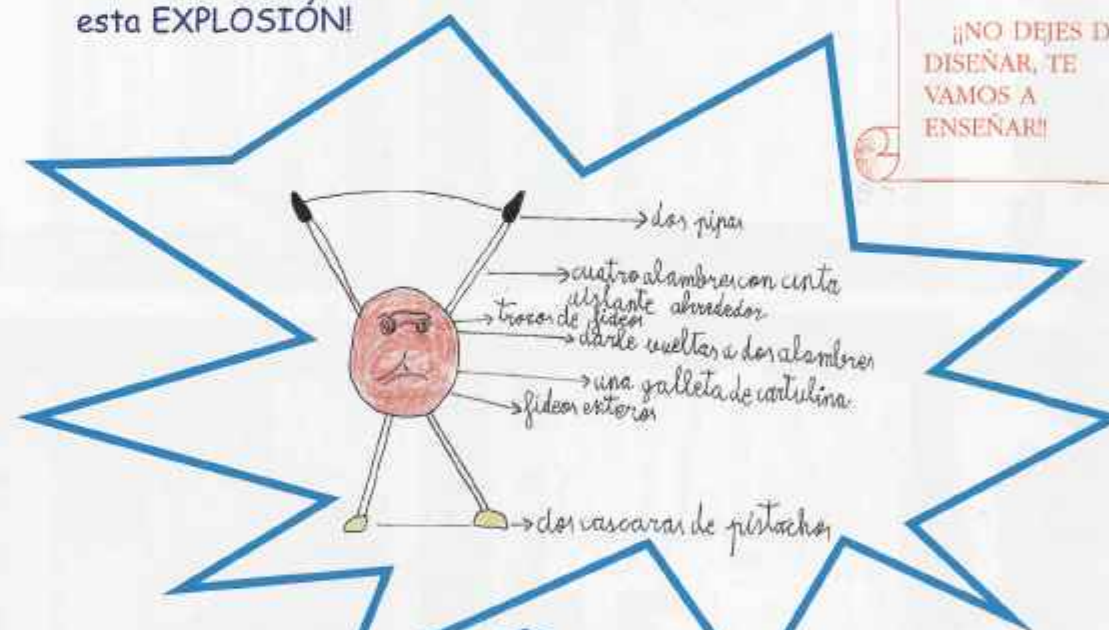 esta EXPLOSIÓN!
¡¡NO DEJES D
DISEÑAR, TE
VAMOS A
ENSEÑAR!!
dos pipas
cuatro alambres con cinta
aislante alrededor
trozos de fideos
darle vueltas a dos alambres
una galleta de cartulina
fideos enteros
dos cascaras de pistachos